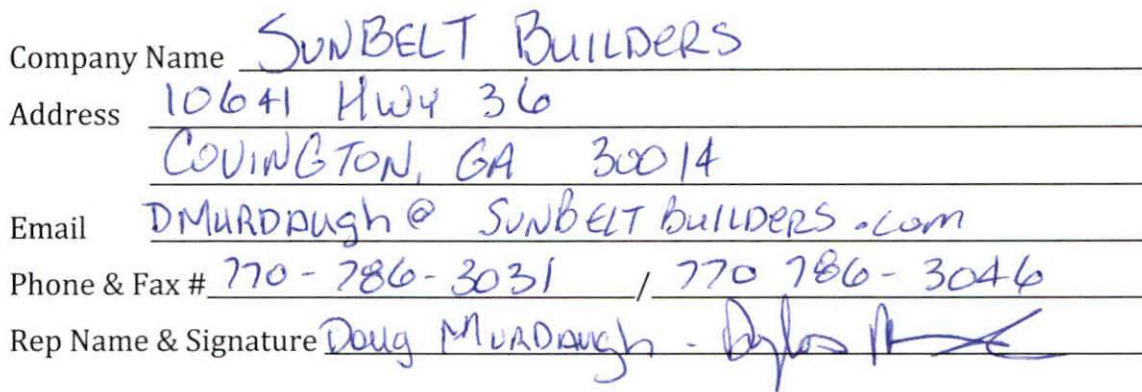 Company Name SUNBELT BUILDERS
Address 10641 HWY 36
COVINGTON, GA 30014
Email DMURDAUGH@SUNBELTBUILDERS.com
Phone & Fax # 770-786-3031 / 770 786-3046
Rep Name & Signature Doug MURDAUGH -